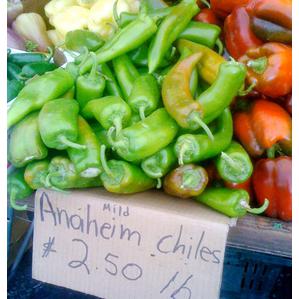 Mild
Anaheim chiles
$2.50 lb